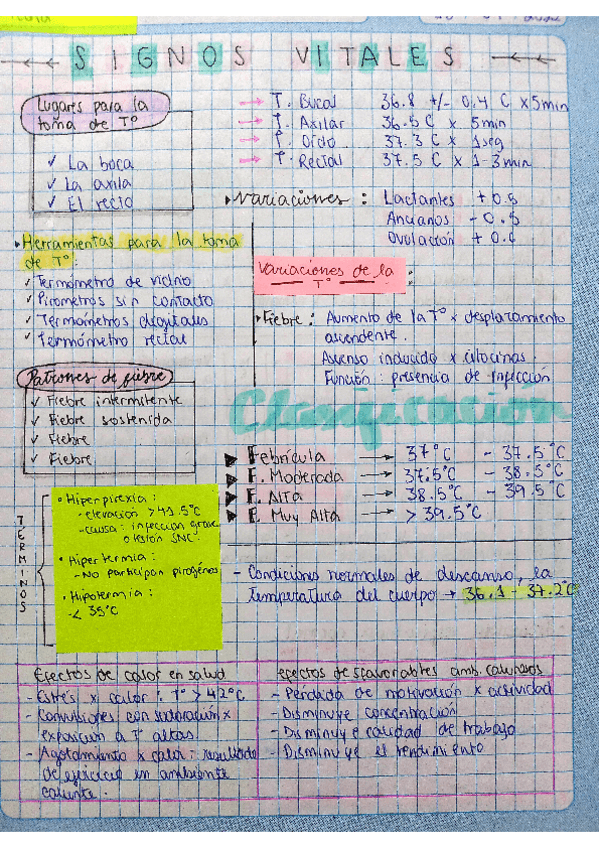 SIGNOS VITALES
Lugares para la
toma de T°
✓ La boca
✓ La axila
✓ El recto
→ T. Bucal 36.8 +/- 0.4 C x 5min
→ T. Axilar 36.5 C x 5min
→ T. Oído 37.3 C x 1seg
→ T. Rectal 37.5 C x 1-3min
Variaciones : Lactantes + 0.5
Ancianos - 0.5
Ovulación + 0.6
Herramientas para la toma
de T°:
✓ Termómetro de vidrio
✓ Pirometros sin contacto
✓ Termómetros digitales
✓ Termómetro rectal
Variaciones de la
T° :
Fiebre : Aumento de la T° x desplazamiento
ascendente.
Ascenso inducido x citocinas.
Función : presencia de infección
Patrones de fiebre
✓ Fiebre intermitente
✓ Fiebre sostenida
✓ Fiebre
✓ Fiebre
Clasificación
Febrícula → 37°C - 37.5°C
F. Moderada → 37.5°C - 38.5°C
F. Alta → 38.5°C - 39.5°C
F. Muy Alta → > 39.5°C
TERMINOS
• Hiperpirexia :
- elevación > 41.5°C
- causa : infección grave
o lesión SNC.
• Hipertermia :
- No participan pirogénos
• Hipotermia :
- < 35°C
- Condiciones normales de descanso, la
temperatura del cuerpo → 36.1 - 37.2°C
Efectos de calor en salud
- Estrés x calor : T° > 42°C
- Convulsiones con sudoración x
exposición a T° altas.
- Agotamiento x calor : resultado
de ejercicio en ambiente
caliente.
efectos desfavorables amb. calurosos
- Perdida de motivación x actividad
- Disminuye concentración
- Disminuye calidad de trabajo
- Disminuye el rendimiento